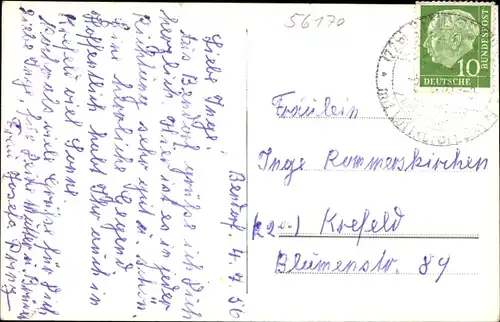 56170
Bendorf, 4.4.56
Liebe Inge!
Aus Bendorf grüße ich Dich
herzlich. Hier ist es in jeder
Richtung sehr gut u. schön.
Eine herrliche Gegend.
Hoffentlich habt Ihr auch in
Krefeld viel Sonne.
Nochmals viele Grüße für Dich
liebe Inge,
Frau Josefa
10
DEUTSCHE
BUNDESPOST
Fräulein
Inge Rommerskirchen
(22a) Krefeld
Blumenstr. 89